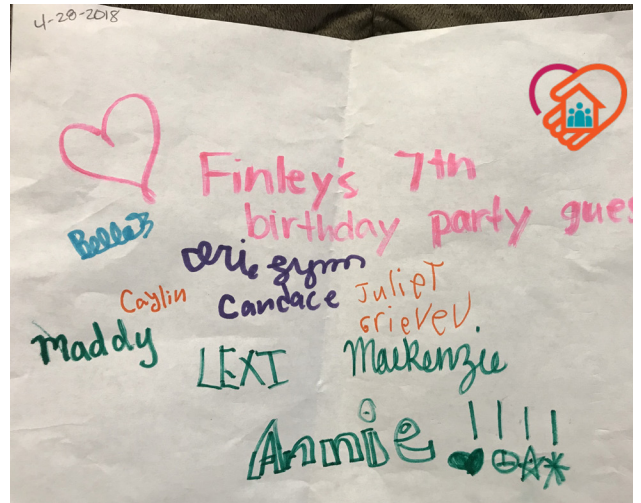 4-28-2018
Finley's 7th
birthday party gues
BellaB
gym
Caylin
Candace
Juliet
Maddy
LEXI
Mackenzie
Annie !!!!